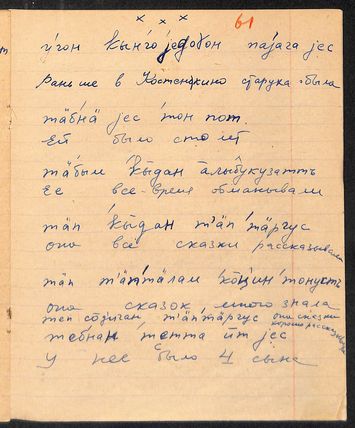 61
× × ×
у́гон кы́н́го једобон паја́га јес
Раньше в Костенкино старуха была
тӓбнӓ јес тон пот
Ей было сто лет
тӓбын кы́дан алыбукузатть
Ее все время обманывали
тӓп кы́дан т'ӓп тӓргус
она все сказки рассказывала
тӓп т'ӓптӓлам ко̄цин тонустъ
она сказок много знала
теп т'ӓптӓргус она сказки хорошо рассказывала
тебнан тетта ӣт јес
У нее было 4 сына